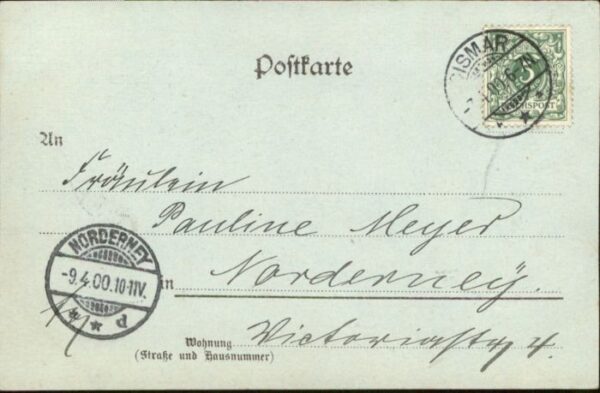 WISMAR
5
REICHSPOST
Postkarte
An
Fräulein
Pauline Meyer
in Norderney.
NORDERNEY
-9.4.00.10-11V.
* * d
Wohnung Victoriastr. 4.
(Straße und Hausnummer)